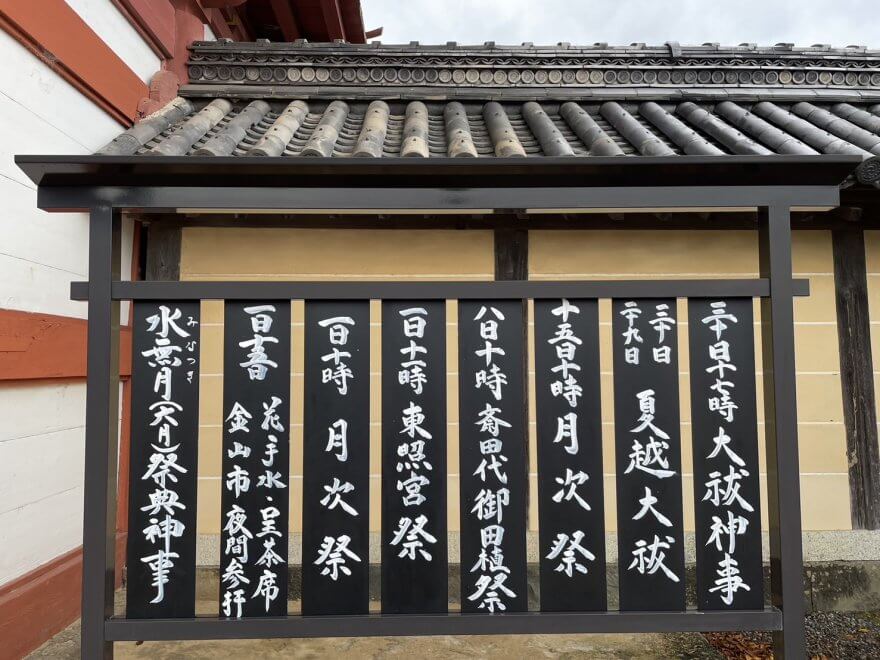 水無月(六月)祭典神事
みなつき
一日十五日
花手水・呈茶席
金山市 夜間参拝
一日十時 月次祭
一日十一時 東照宮祭
八日十時 斎田代御田植祭
十五日十時 月次祭
三十日
二十九日
夏越大祓
三十日十七時 大祓神事